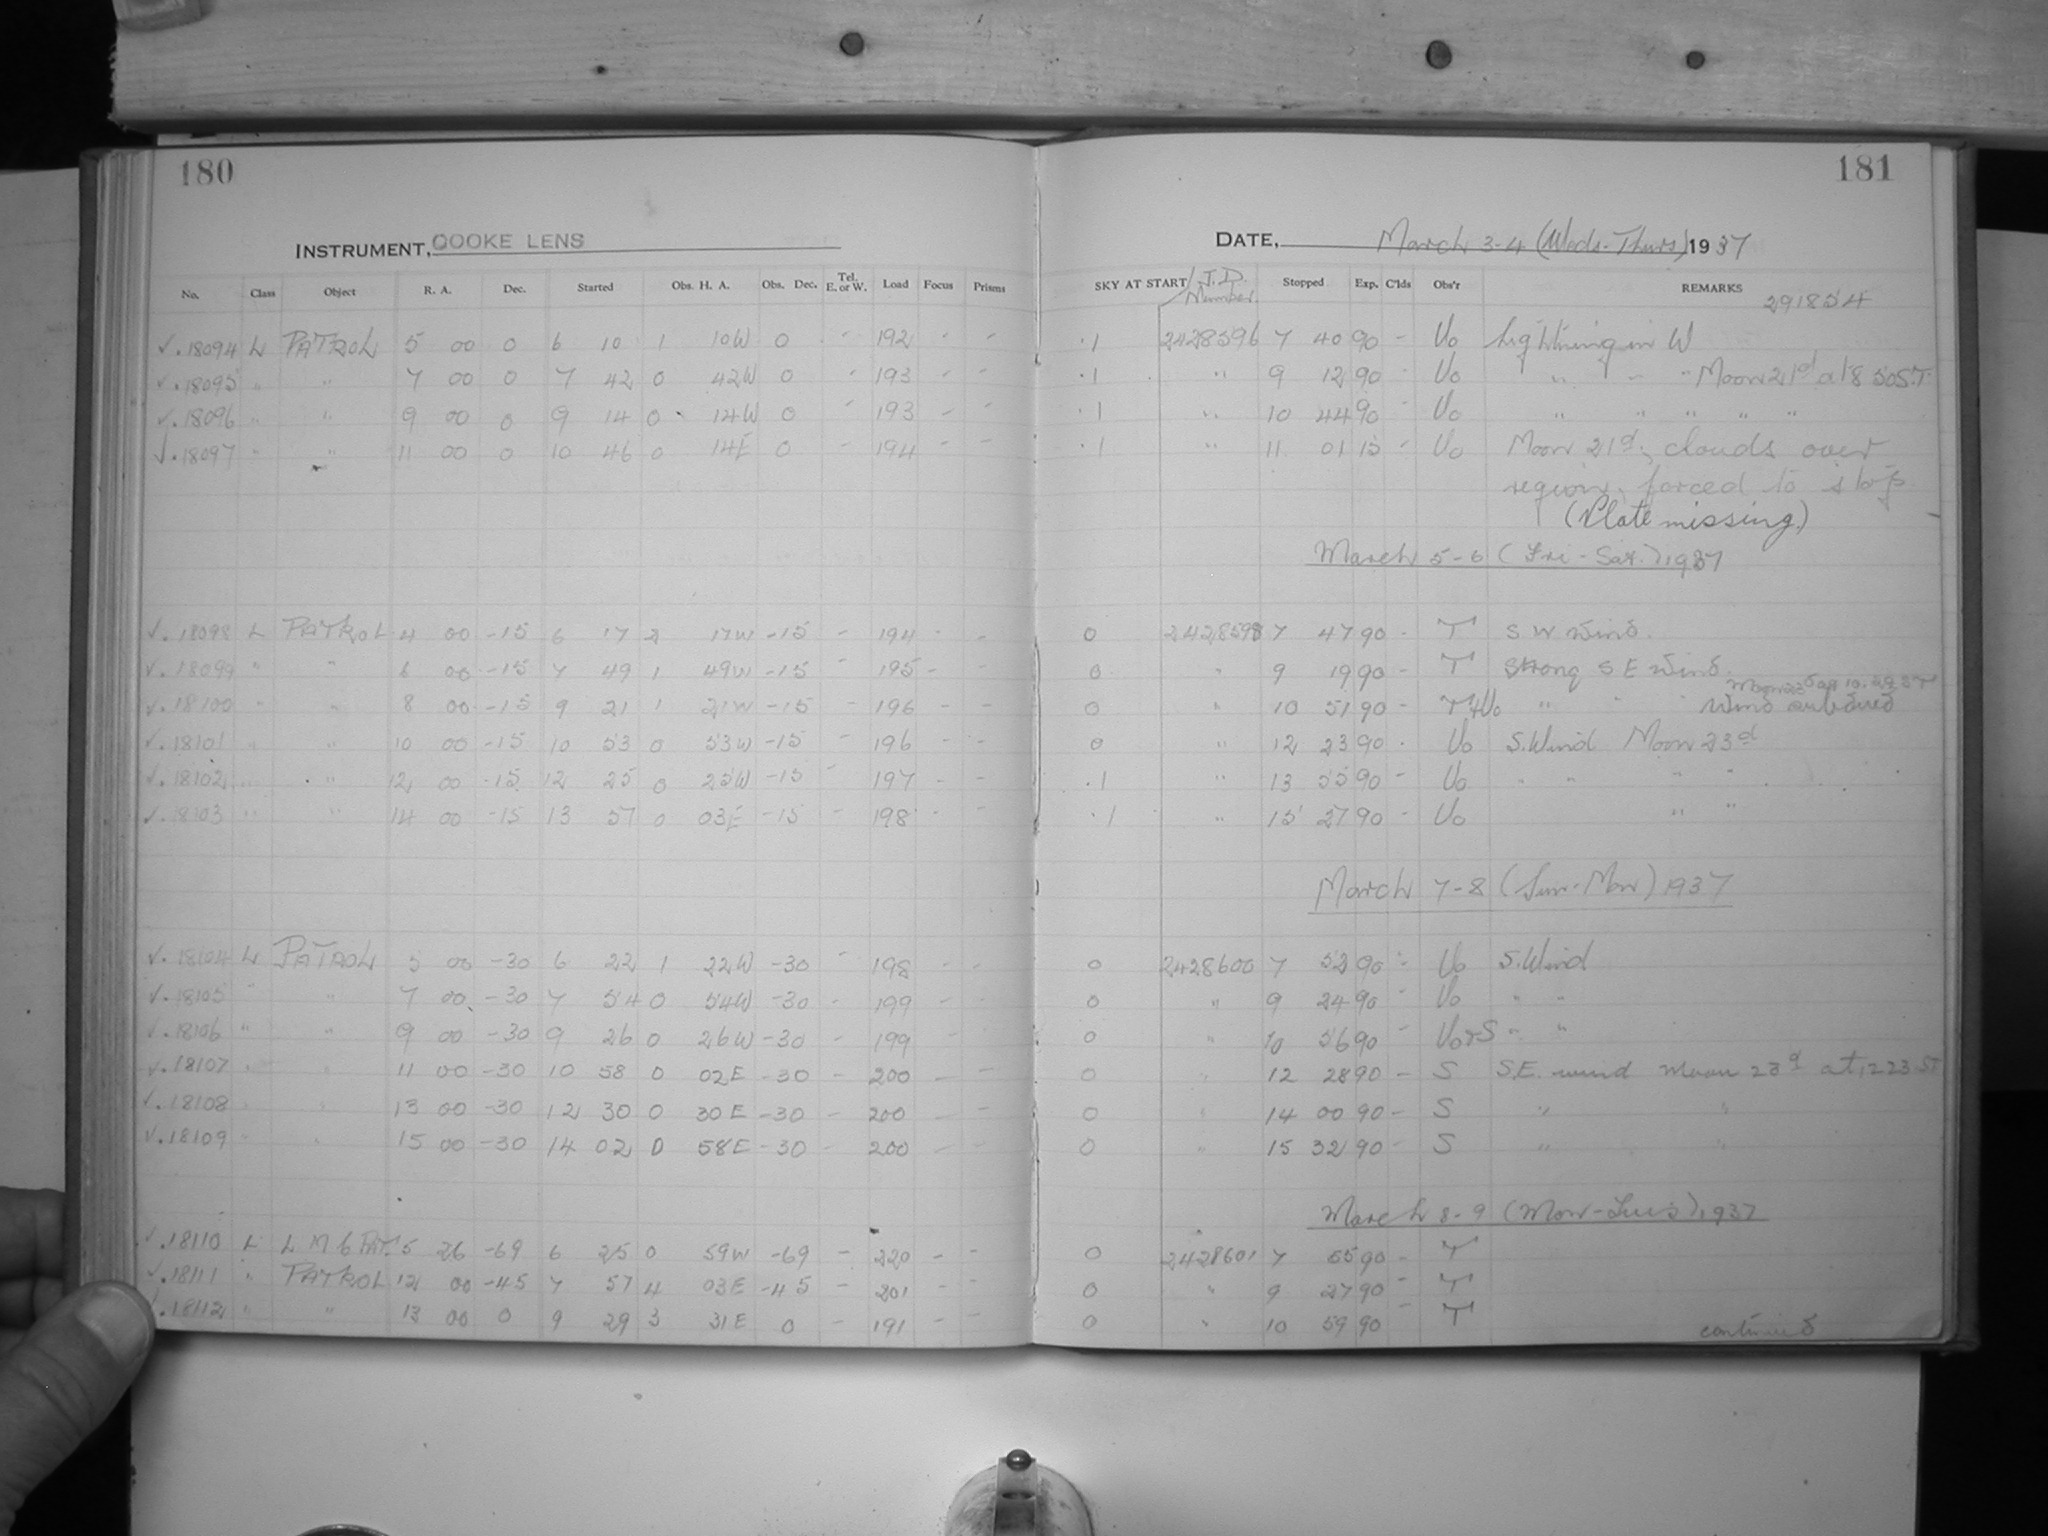 180
INSTRUMENT, COOKE LENS
No. Class Object R. A. Dec. Started Obs. H. A. Obs. Dec. Tel. E. or W. Load Focus Prisms
√.18094 L PATROL 5 00 0 6 10 1 10W 0 " 192 - -
√.18095 " " 7 00 0 7 42 0 42W 0 " 193 - -
√.18096 " " 9 00 0 9 14 0 14W 0 " 193 - -
√.18097 " " 11 00 0 10 46 0 14E 0 - 194 - -
√.18098 L PATROL 4 00 -15 6 17 2 17W -15 - 194 - -
√.18099 " " 6 00 -15 7 49 1 49W -15 - 195 - -
√.18100 " " 8 00 -15 9 21 1 21W -15 - 196 - -
√.18101 " " 10 00 -15 10 53 0 53W -15 - 196 - -
√.18102 " " 12 00 -15 12 25 0 25W -15 - 197 - -
√.18103 " " 14 00 -15 13 57 0 03E -15 - 198 - -
√.18104 L PATROL 5 00 -30 6 22 1 22W -30 - 198 - -
√.18105 " " 7 00 -30 7 54 0 54W -30 - 199 - -
√.18106 " " 9 00 -30 9 26 0 26W -30 - 199 - -
√.18107 " " 11 00 -30 10 58 0 02E -30 - 200 - -
√.18108 " " 13 00 -30 12 30 0 30E -30 - 200 - -
√.18109 " " 15 00 -30 14 02 0 58E -30 - 200 - -
√.18110 L L M C PAT. 5 26 -69 6 25 0 59W -69 - 220 - -
√.18111 " PATROL 12 00 -45 7 57 4 03E -45 - 201 - -
√.18112 " " 13 00 0 9 29 3 31E 0 - 191 - -
181
DATE, March 3-4 (Weds-Thurs) 1937
SKY AT START J.D. Number Stopped Exp. C'lds Obs'r REMARKS
291854
.1 2428596 7 40 90 - Uo Lightning in W
.1 " 9 12 90 - Uo " - " Moon 21d at 8 50 S.T.
.1 " 10 44 90 - Uo " " " " "
.1 " 11 01 15 - Uo Moon 21d, clouds over
region, forced to stop
(Plate missing)
March 5-6 (Fri-Sat.) 1937
0 2428598 7 47 90 - T S W wind.
0 " 9 19 90 - T Strong S E wind.
0 " 10 51 90 - T&Uo " " wind subdued
0 " 12 23 90 - Uo S. Wind Moon 23d
.1 " 13 55 90 - Uo " " " "
.1 " 15 27 90 - Uo " "
March 7-8 (Sun-Mon) 1937
0 2428600 7 52 90 - Uo S. Wind
0 " 9 24 90 - Uo " "
0 " 10 56 90 - Uo&S " "
0 " 12 28 90 - S S.E. wind Moon 23d at 12 23 ST
0 " 14 00 90 - S " "
0 " 15 32 90 - S " "
March 8-9 (Mon-Tues) 1937
0 2428601 7 55 90 - T
0 " 9 27 90 - T
0 " 10 59 90 - T
continued